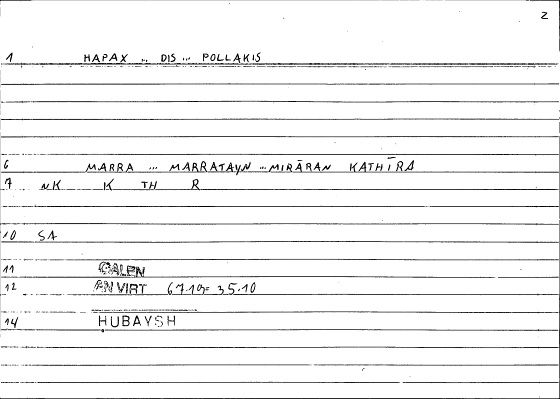 2
1 HAPAX ... DIS ... POLLAKIS
6 MARRA ... MARRATAYN ... MIRĀRAN KATHĪRA
7 NK K TH R
10 SA
11 GALEN
12 AN VIRT 67.19= 35.10
14 ḤUBAYSH